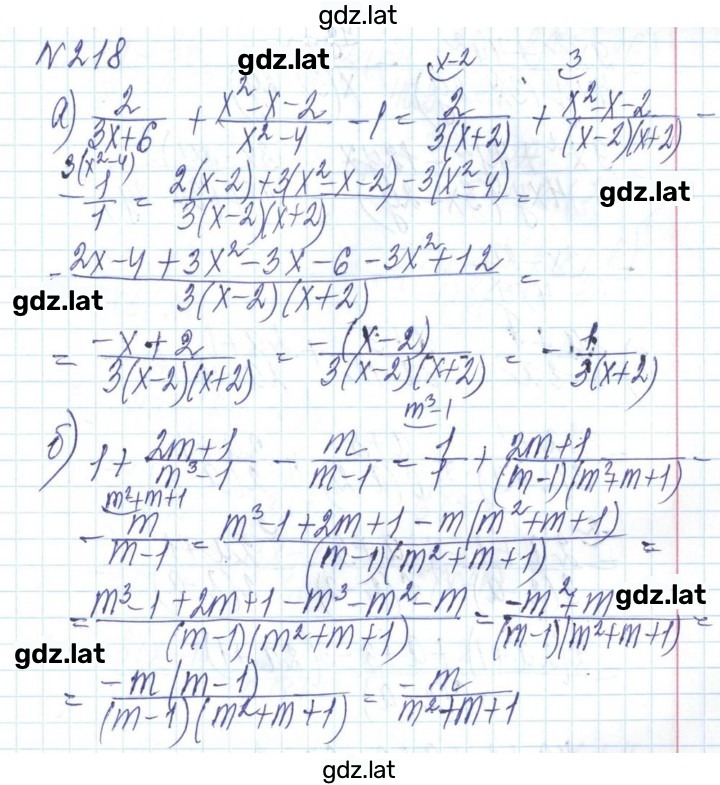 gdz.lat
N218
gdz.lat
x-2 3
а) 2/(3x+6) + (x²-x-2)/(x²-4) - 1 = 2/(3(x+2)) + (x²-x-2)/((x-2)(x+2)) -
3(x²-4)
- 1/1 = (2(x-2)+3(x²-x-2)-3(x²-4))/(3(x-2)(x+2)) =
gdz.lat
- (2x-4+3x²-3x-6-3x²+12)/(3(x-2)(x+2)) =
gdz.lat
= (-x+2)/(3(x-2)(x+2)) = (-(x-2))/(3(x-2)(x+2)) = - 1/(3(x+2))
m³-1
б) 1 + (2m+1)/(m³-1) - m/(m-1) = 1/1 + (2m+1)/((m-1)(m²+m+1)) -
m²+m+1
- m/(m-1) = (m³-1+2m+1-m(m²+m+1))/((m-1)(m²+m+1)) =
= (m³-1+2m+1-m³-m²-m)/((m-1)(m²+m+1)) = (-m²+m)/((m-1)(m²+m+1)) =
gdz.lat
gdz.lat
= (-m(m-1))/((m-1)(m²+m+1)) = (-m)/(m²+m+1)
gdz.lat